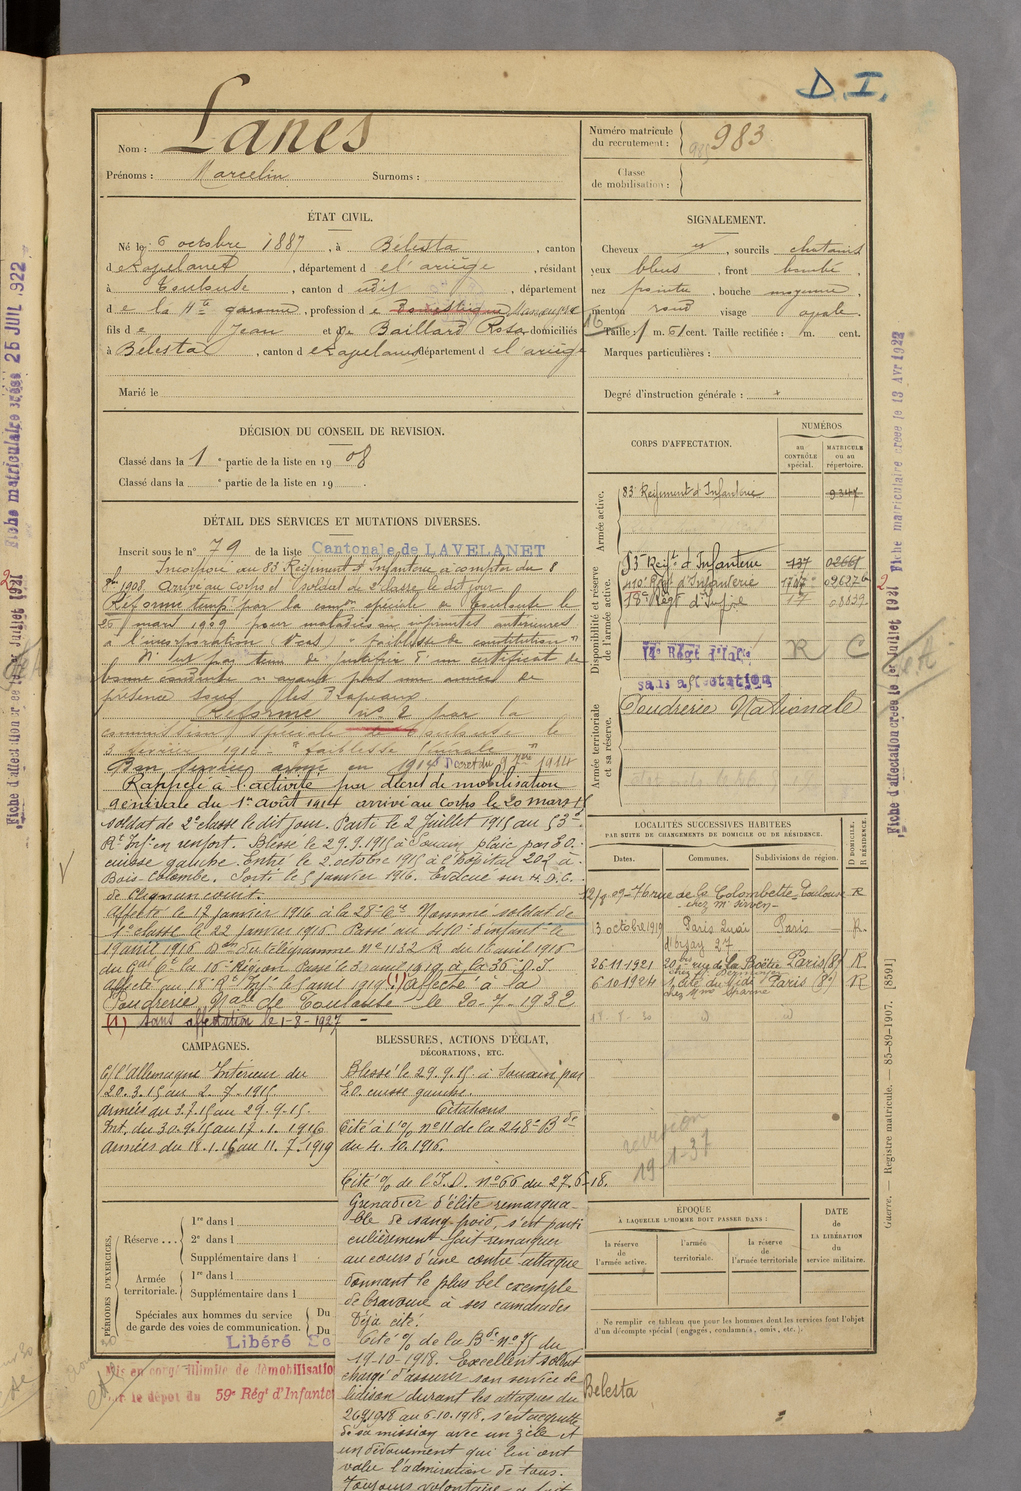 D.I.
Nom : Lanes
Prénoms : Marcelin Surnoms :
Numéro matricule du recrutement : 983
Classe de mobilisation :
ÉTAT CIVIL.
Né le 6 octobre 1887, à Bélesta, canton
de Lavelanet, département de l'ariège, résidant
à Toulouse, canton d udit, département
de la Hte garonne, profession de Domestique Manœuvre
fils de Jean et de Baillard Rosa domiciliés
à Bélesta, canton de Lavelanet département de l'ariège
Marié le
SIGNALEMENT.
Cheveux , sourcils chatains
yeux bleus, front bombé,
nez pointu, bouche moyenne,
menton rond visage ovale.
Taille : 1 m. 61 cent. Taille rectifiée : m. cent.
Marques particulières :
Degré d'instruction générale :
DÉCISION DU CONSEIL DE REVISION.
Classé dans la 1e partie de la liste en 1908
Classé dans la e partie de la liste en 19 .
DÉTAIL DES SERVICES ET MUTATIONS DIVERSES.
Inscrit sous le n° 79 de la liste Cantonale de LAVELANET
Incorporé au 83 Régiment d'Infanterie à compter du 8
8bre 1908. Arrivé au corps et soldat de 2e classe le dit jour
Réformé tempre par la comon spéciale de Toulouse le
26 mars 1909 pour maladies ou infirmités antérieures
à l'incorporation "faiblesse de constitution"
N'est pas tenu de justifier d'un certificat de
bonne conduite n'ayant pas un année de
présence sous les Drapeaux
Réformé n° 2 par la
commission spéciale de Toulouse le
3 février 1910 "faiblesse
Bon service armé en 1914 Décret du 9 7bre 1914
Rappelé à l'activité par décret de mobilisation
générale du 1er août 1914 arrivé au corps le 20 mars 15
soldat de 2e classe le dit jour. Parti le 2 Juillet 1915 au 53e
Rt Inf. en renfort. Blessé le 29.9.1915 à Souain, plaie par E.O.
cuisse gauche. Entré le 2 octobre 1915 à l'hôpital 202 à
Bois-Colombe. Sorti le 5 janvier 1916. Evacué sur H.D.C.
de
Affecté le 17 janvier 1916 à la 28e Cie Nommé soldat de
1e classe le 22 janvier 1916 Passé au 410e d'infantie le
19 avril 1916 Don du télégramme n° 1132 R du 16 avril 1916
du Gal Ct la 10e Région Passé le 3 avril 1919 à la 36e D.I.
affecté au 18e Rt Inf. le 5 avril 1919 (1) Affecté à la
Poudrerie Nale de Toulouse le 20-7-1932
(1) sans affectation le 1-8-1927 -
CORPS D'AFFECTATION.
NUMÉROS
au CONTRÔLE spécial.
MATRICULE ou au répertoire.
Armée active.
83 Régiment d'Infanterie 9347
Disponibilité et réserve de l'armée active.
53e Regt d'Infanterie 137 02661
410e Regt d'Infanterie
18e Regt d'Infie 17 08839
14e Régt d'Infie R C
sans affectation
Armée territoriale et sa réserve.
Poudrerie Nationale
LOCALITÉS SUCCESSIVES HABITÉES
PAR SUITE DE CHANGEMENTS DE DOMICILE OU DE RÉSIDENCE.
Dates. Communes. Subdivisions de région. D DOMICILE. R RÉSIDENCE.
12/9 09 - 76 rue de la Colombette - Toulouse R
chez Mr Sirven -
13 octobre 1919 Paris Quai Paris - R.
d'Orsay 27
26-11 1921 20 bis rue de la Boëtie Paris (8e) R
6-10 1924 1 cité du Midi Paris (8e) R
chez Mme
révision
19-1-37
CAMPAGNES.
C/ l'Allemagne Intérieur du
20.3.15 au 2.7.1915
armées du 3.7.15 au 29.9.15.
Int. du 30.9.15 au 17.1.1916
armées du 18.1.16 au 11.7.1919
BLESSURES, ACTIONS D'ÉCLAT,
DÉCORATIONS, ETC.
Blessé le 29.9.15 à Souain par
E.O. cuisse gauche.
Citations
Cité à l'o/o n° 11 de la 248e Bde
du 4.10.1916.
Cité o/o de l'I.D. n° 66 du 27.6-18.
Grenadier d'élite remarqua-
ble de sang-froid, s'est parti
culièrement fait remarquer
au cours d'une contre attaque
donnant le plus bel exemple
de bravoure à ses camarades
Déjà cité.
Cité o/o de la Bde n° 75 du
19-10-1918. Excellent soldat
chargé d'assurer son service de
liaison durant les attaques du
26 9 1918 au 6-10.1918. s'est acquitté
de sa mission avec un zèle et
un dévouement qui lui ont
valu l'admiration de tous.
Toujours volontaire
PÉRIODES D'EXERCICES.
Réserve ...
1re dans l
2e dans l
Supplémentaire dans l
Armée territoriale.
1re dans l
Supplémentaire dans l
Spéciales aux hommes du service de garde des voies de communication.
Du
Du
Libéré
Mis en congé illimité de démobilisatio
par le dépôt du 59e Régt d'Infante
Bélesta
ÉPOQUE
À LAQUELLE L'HOMME DOIT PASSER DANS :
la réserve de l'armée active.
l'armée territoriale.
la réserve de l'armée territoriale
DATE de LA LIBÉRATION du service militaire.
Ne remplir ce tableau que pour les hommes dont les services font l'objet
d'un décompte spécial (engagés, condamnés, omis, etc.).
Guerre. — Registre matricule. — 85-89-1907. [8591]
Fiche matriculaire créée le 13 Avr 1922
Fiche d'affectation créée le 1er Juillet 1921
Fiche matriculaire créée 25 JUIL 1922
Fiche d'affectation créée le 1er Juillet 1921